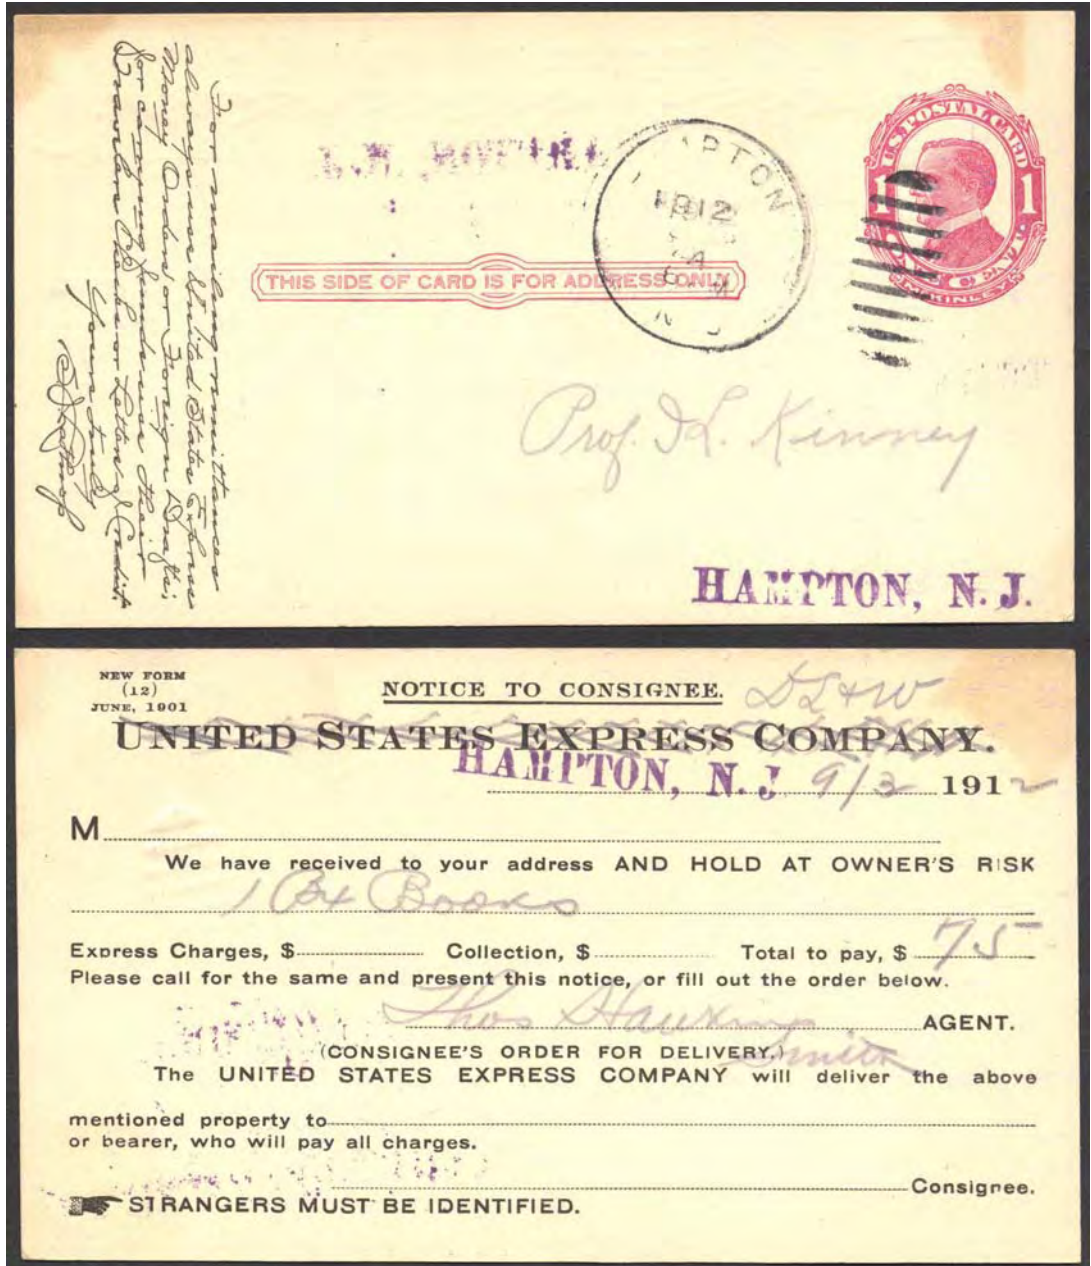 For mailing remittances
always use United States Express
Money Orders or Foreign Drafts;
for carrying funds use their
Travelers Checks or Letters of Credit.
Yours truly
U.S. POSTAL CARD
1 1
ONE CENT
McKINLEY
THIS SIDE OF CARD IS FOR ADDRESS ONLY
HAMPTON
12
N J
Prof. I L. Kinney
HAMPTON, N. J.
NEW FORM
(12)
JUNE, 1901
NOTICE TO CONSIGNEE.
DL+W
UNITED STATES EXPRESS COMPANY.
HAMPTON, N. J. 9/3 1912
M
We have received to your address AND HOLD AT OWNER'S RISK
1 Bx Books
Express Charges, $ Collection, $ Total to pay, $ 75
Please call for the same and present this notice, or fill out the order below.
Thos Hawkins AGENT.
Smith
(CONSIGNEE'S ORDER FOR DELIVERY.)
The UNITED STATES EXPRESS COMPANY will deliver the above
mentioned property to
or bearer, who will pay all charges.
Consignee.
STRANGERS MUST BE IDENTIFIED.